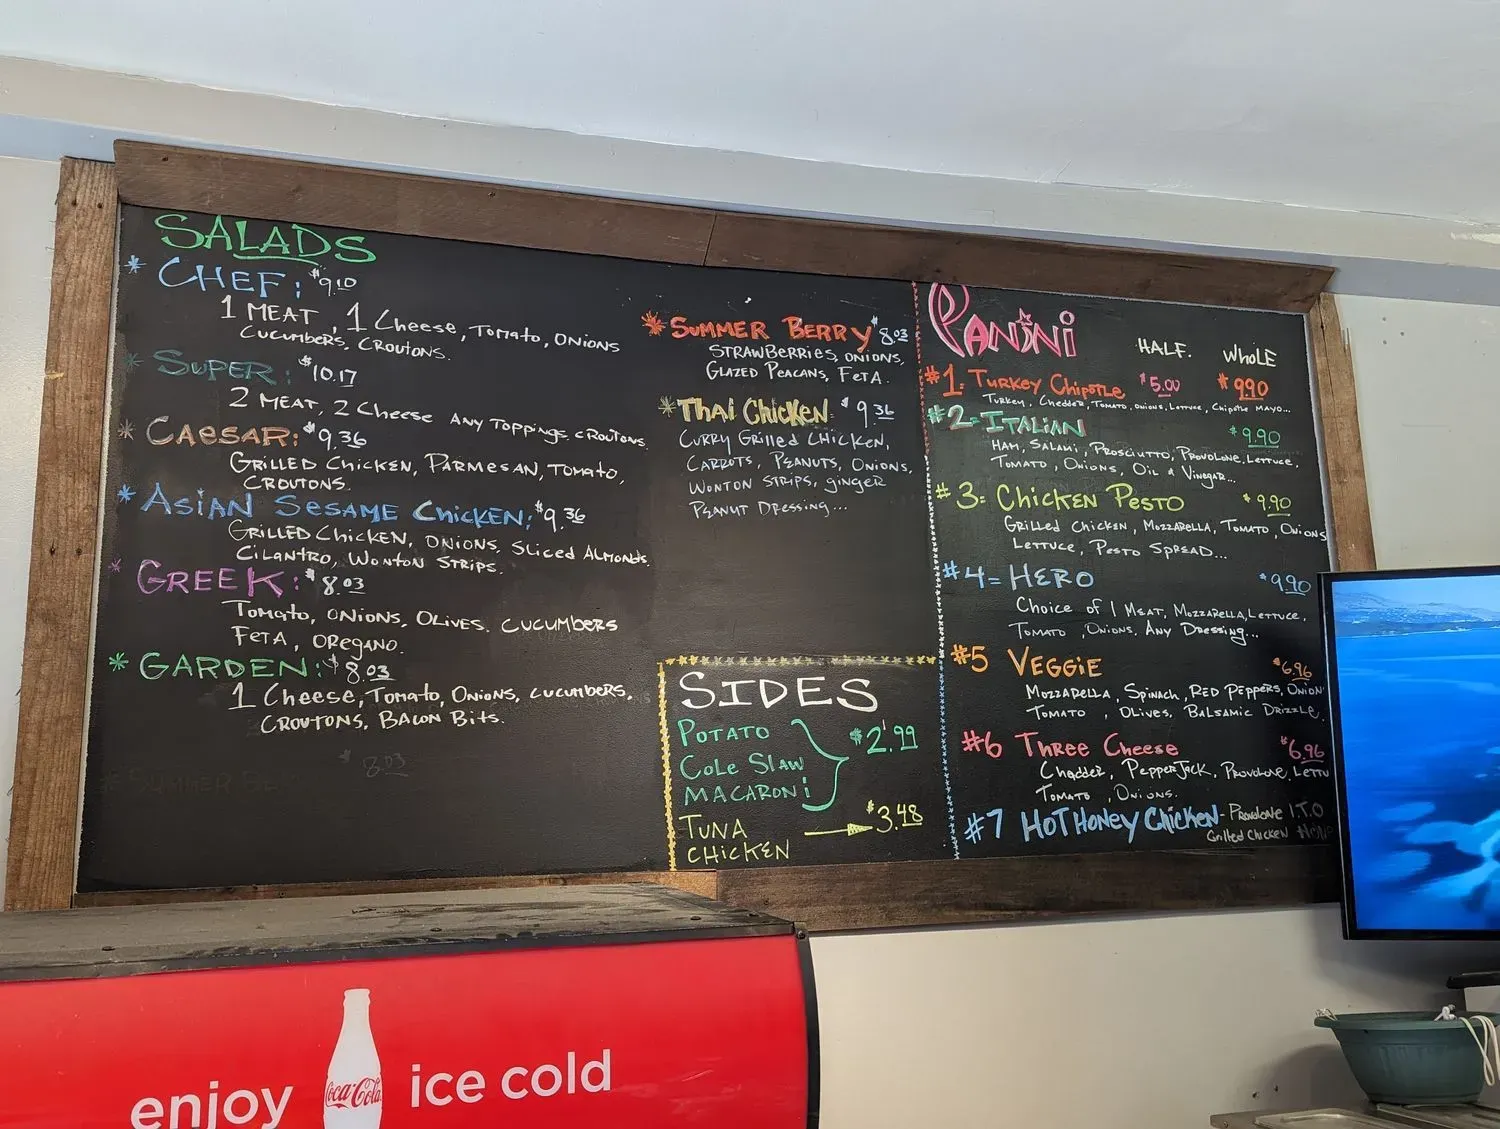 SALADS
* CHEF: $9.10
1 MEAT, 1 Cheese, Tomato, ONIONS
CUCUMBERS, CROUTONS.
* SUPER: $10.17
2 MEAT, 2 Cheese ANY TOPPINGS. CROUTONS.
* CAESAR: $9.36
GRILLED CHICKEN, PARMESAN, TOMATO,
CROUTONS.
* ASIAN SESAME CHICKEN: $9.36
GRILLED CHICKEN, ONIONS, SLICED ALMONDS.
CILANTRO, WONTON STRIPS.
* GREEK: $8.03
TOMATO, ONIONS, OLIVES. CUCUMBERS
FETA, OREGANO.
* GARDEN: $8.03
1 Cheese, Tomato, ONIONS, CUCUMBERS,
CROUTONS, BACON BITS.
* SUMMER $8.03
* SUMMER BERRY $8.03
STRAWBERRIES, ONIONS,
GLAZED PEACANS, FETA.
* THAI CHICKEN $9.36
CURRY GRILLED CHICKEN,
CARROTS, PEANUTS, ONIONS,
WONTON STRIPS, GINGER
PEANUT DRESSING...
SIDES
POTATO
COLE SLAW $2.99
MACARONI
TUNA $3.48
CHICKEN
PANINI
HALF. WHOLE
#1. TURKEY CHIPOTLE $5.00 $9.90
TURKEY, CHEDDER, TOMATO, ONIONS, LETTUCE, CHIPOTLE MAYO...
#2= ITALIAN $9.90
HAM, SALAMI, PROSCIUTTO, PROVOLONE, LETTUCE,
TOMATO, ONIONS, OIL & VINEGAR...
#3: CHICKEN PESTO $9.90
GRILLED CHICKEN, MOZZARELLA, TOMATO, ONIONS
LETTUCE, PESTO SPREAD...
#4= HERO $9.90
Choice of 1 MEAT, MOZZARELLA, LETTUCE,
TOMATO, ONIONS, ANY DRESSING...
#5 VEGGIE $6.96
MOZZARELLA, SPINACH, RED PEPPERS, ONION
TOMATO, OLIVES, BALSAMIC DRIZZLE.
#6 THREE CHEESE $6.96
CHADDER, PEPPERJACK, PROVOLONE, LETTU
TOMATO, ONIONS.
#7 HOT HONEY CHICKEN - PROVOLONE L.T.O
GRILLED CHICKEN
enjoy Coca-Cola ice cold